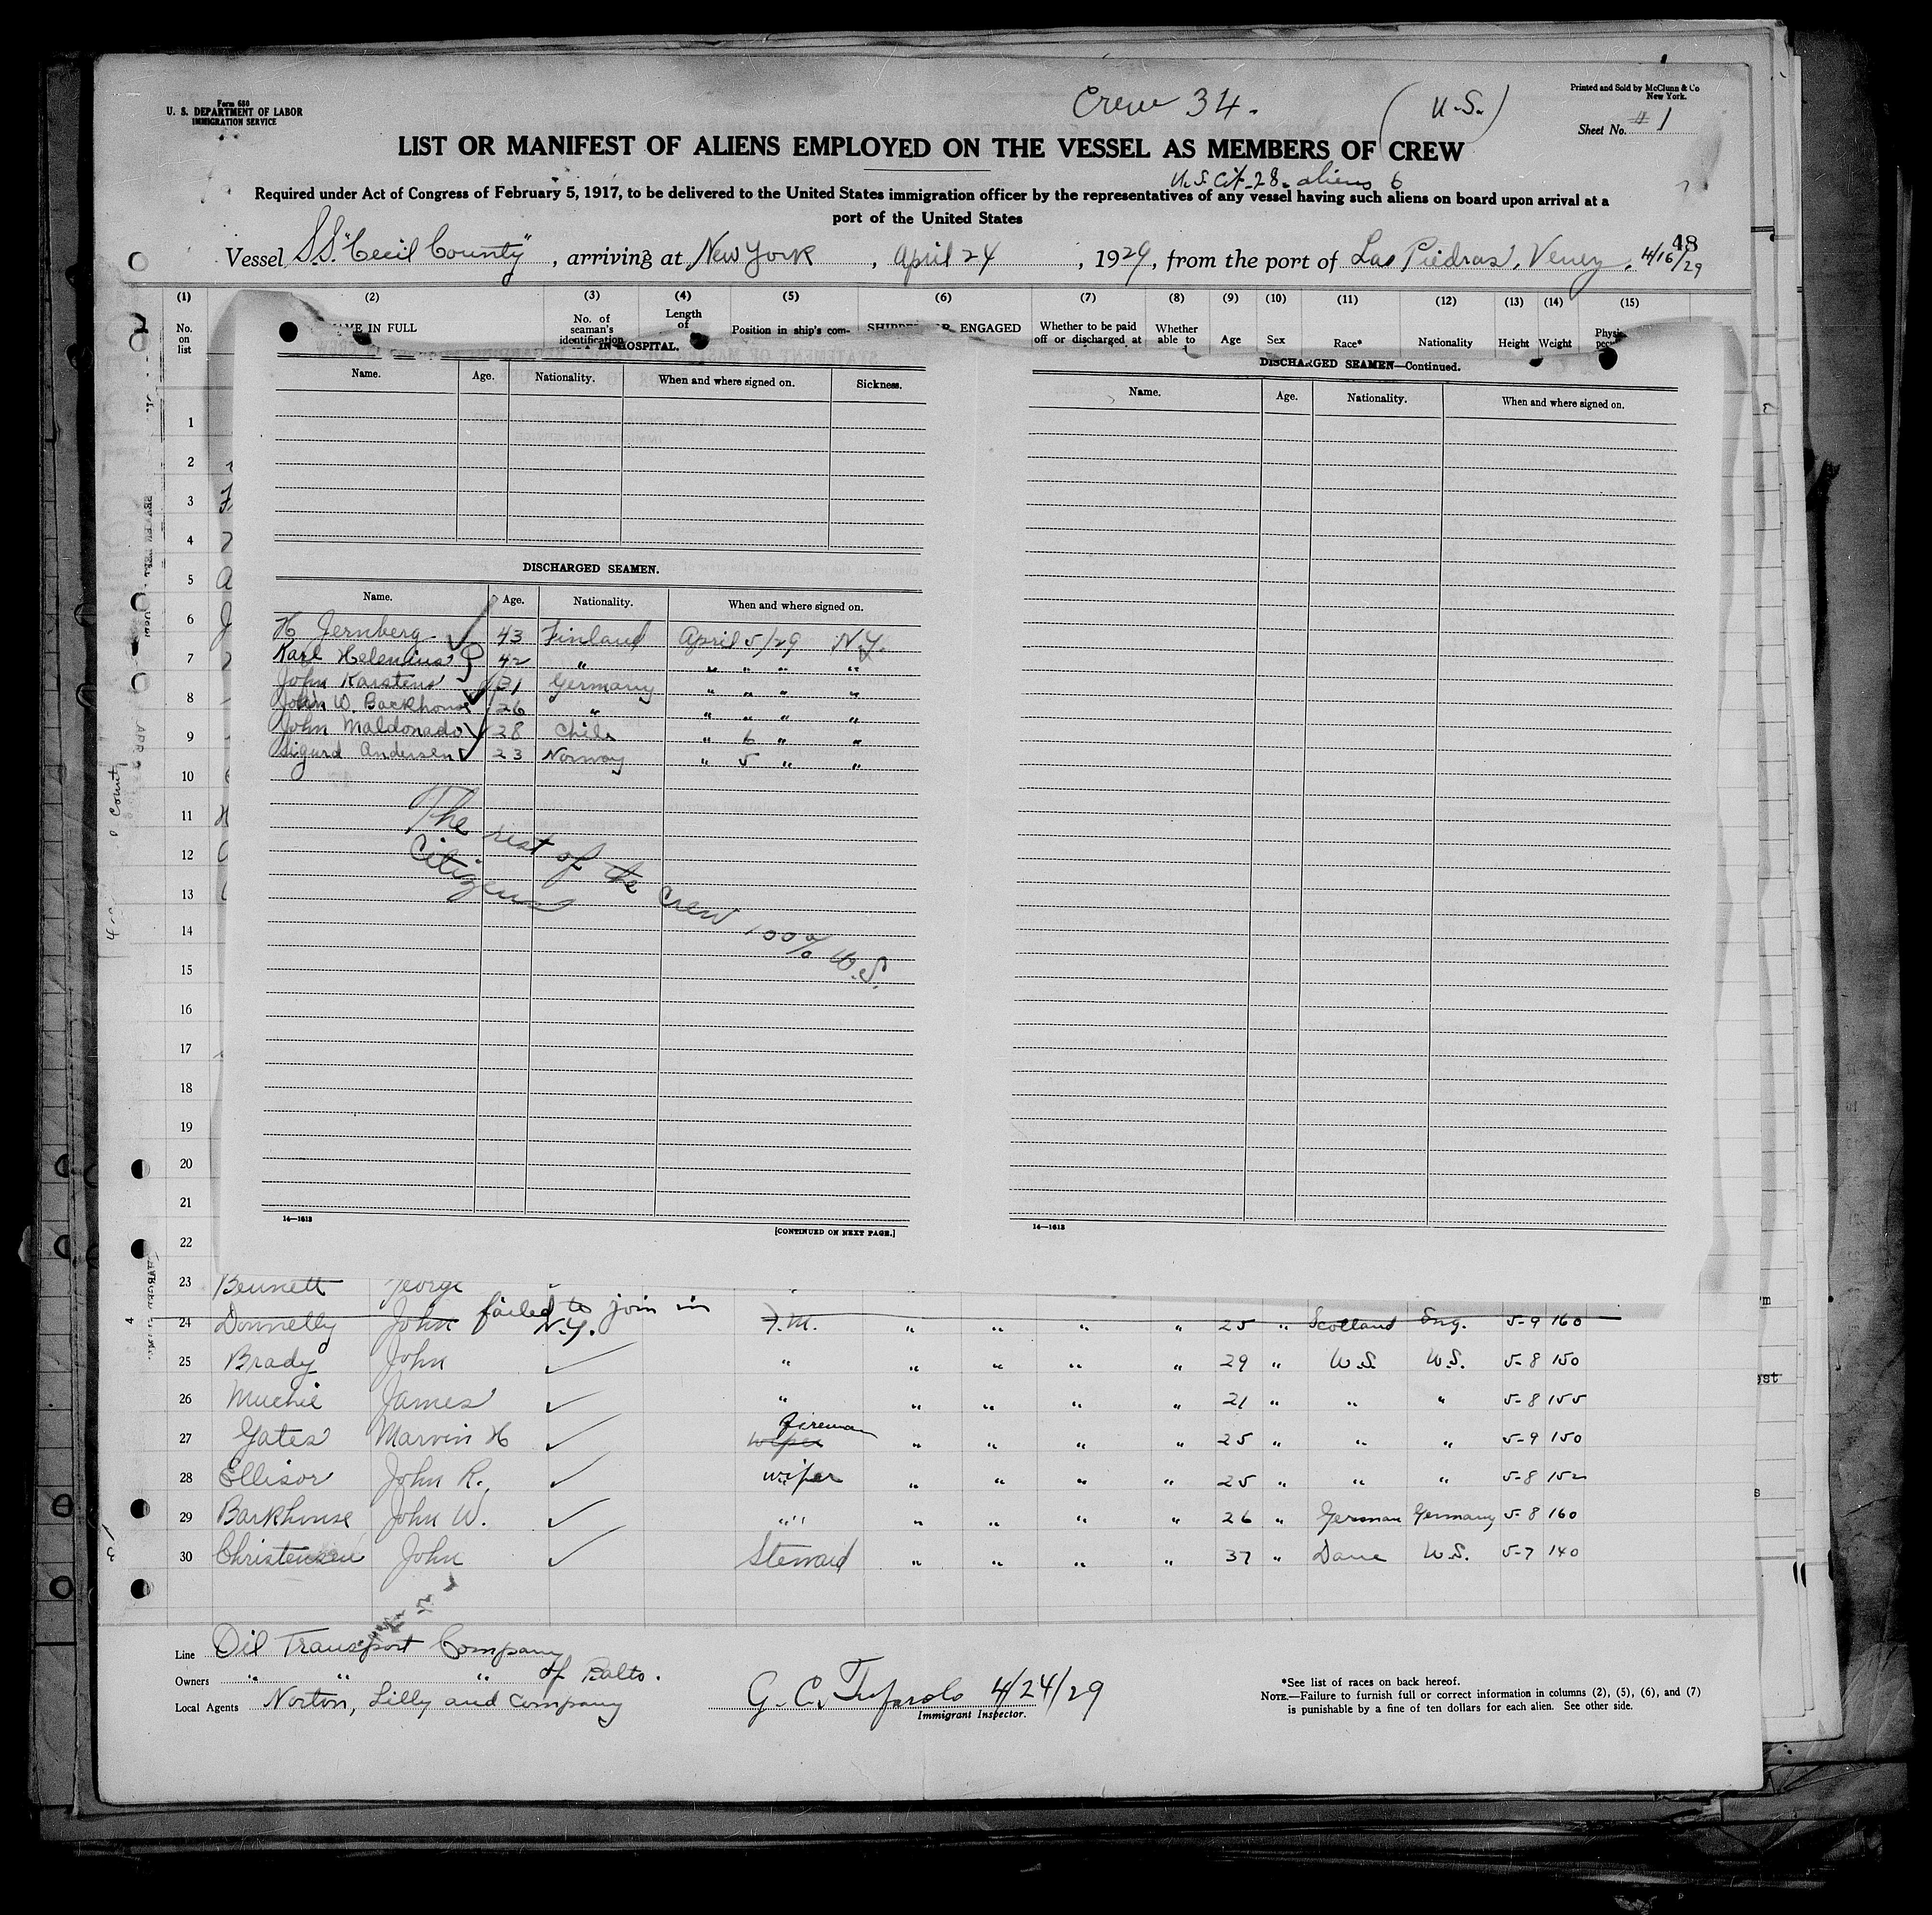 Form 680
U. S. DEPARTMENT OF LABOR
IMMIGRATION SERVICE
Crew 34. (U.S.)
Printed and Sold by McClunn & Co
New York.
Sheet No. #1
LIST OR MANIFEST OF ALIENS EMPLOYED ON THE VESSEL AS MEMBERS OF CREW
U.S. Cit-28. aliens 6
Required under Act of Congress of February 5, 1917, to be delivered to the United States immigration officer by the representatives of any vessel having such aliens on board upon arrival at a
port of the United States
48
Vessel S.S. "Cecil County", arriving at New York, April 24, 1929, from the port of Las Piedras, Venez. 4/16/29
(1) (2) (3) (4) (5) (6) (7) (8) (9) (10) (11) (12) (13) (14) (15)
No. on list
IN FULL
No. of seaman's identification
Length of
Position in ship's com-
ENGAGED
Whether to be paid off or discharged at
Whether able to
Age
Sex
Race*
Nationality
Height
Weight
IN HOSPITAL.
Name. Age. Nationality. When and where signed on. Sickness.
DISCHARGED SEAMEN—Continued.
Name. Age. Nationality. When and where signed on.
DISCHARGED SEAMEN.
Name. Age. Nationality. When and where signed on.
H Jernberg 43 Finland April 5/29 N.Y.
Karl Helenius 42 " " " " "
John Karstens 31 Germany " " " "
John W. Backhouse 26 " " " " "
John Maldonado 28 Chile " 6 " "
Sigurd Andersen 23 Norway " 5 " "
The rest of the crew 100% U.S.
Citizens
14—1613
[CONTINUED ON NEXT PAGE.]
14—1613
1
2
3
4
5
6
7
8
9
10
11
12
13
14
15
16
17
18
19
20
21
22
23 Bennett George
24 Donnelly John failed to join in N.Y. F.M. " " " " 25 " Scotland Eng. 5-9 160
25 Brady John " " " " " 29 " U.S. U.S. 5-8 150
26 Muchie James " " " " " 21 " " " 5-8 155
27 Gates Marvin H wiper Fireman " " " " 25 " " " 5-9 150
28 Ellisor John R. wiper " " " " 25 " " " 5-8 152
29 Barkhouse John W. " " " " " 26 " German Germany 5-8 160
30 Christensen John Steward " " " " 37 " Dane U.S. 5-7 140
Line Oil Transport Company
Owners " " " of Balto.
Local Agents Norton, Lilly and Company
G. C. 4/24/29
Immigrant Inspector.
*See list of races on back hereof.
NOTE.—Failure to furnish full or correct information in columns (2), (5), (6), and (7)
is punishable by a fine of ten dollars for each alien. See other side.